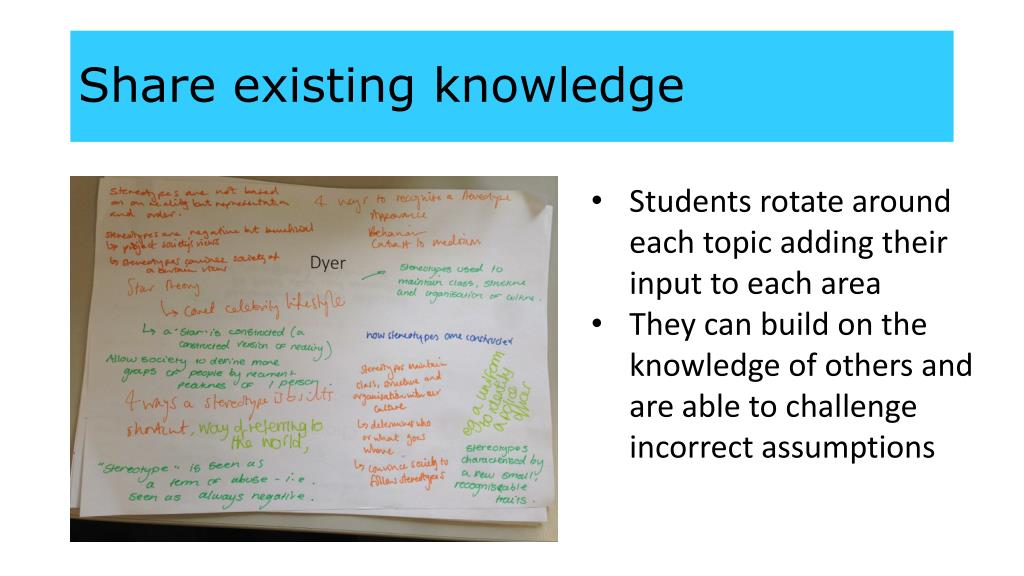 Share existing knowledge
Stereotypes are not based
on on reality but representation
and order.
Stereotypes are negative but beneficial
↳ project society's views
↳ stereotypes convince society of
a certain views
4 ways to recognise a stereotype
Appearance
Behaviour
to medium
Dyer
Stereotypes used to
maintain class, structure
and organisation of culture.
Star Theory
↳ celebrity lifestyle
↳ a 'star' is constructed (a
constructed version of reality)
Allow society to define more
groups of people by recurrent
of 1 person.
how stereotypes are constructed
4 ways a stereotype is built
shortcut, way of referring to
the world,
"Stereotype" is seen as
a term of abuse - i.e.
seen as always negative.
Stereotypes maintain
class, structure and
organisation within our
culture
↳ determines who
or what goes
where
↳ Convince society to
follow stereotypes
eg a uniform
to identify
a police
officer
Stereotypes
characterised by
a few small,
recogniseable
traits.
• Students rotate around
each topic adding their
input to each area
• They can build on the
knowledge of others and
are able to challenge
incorrect assumptions